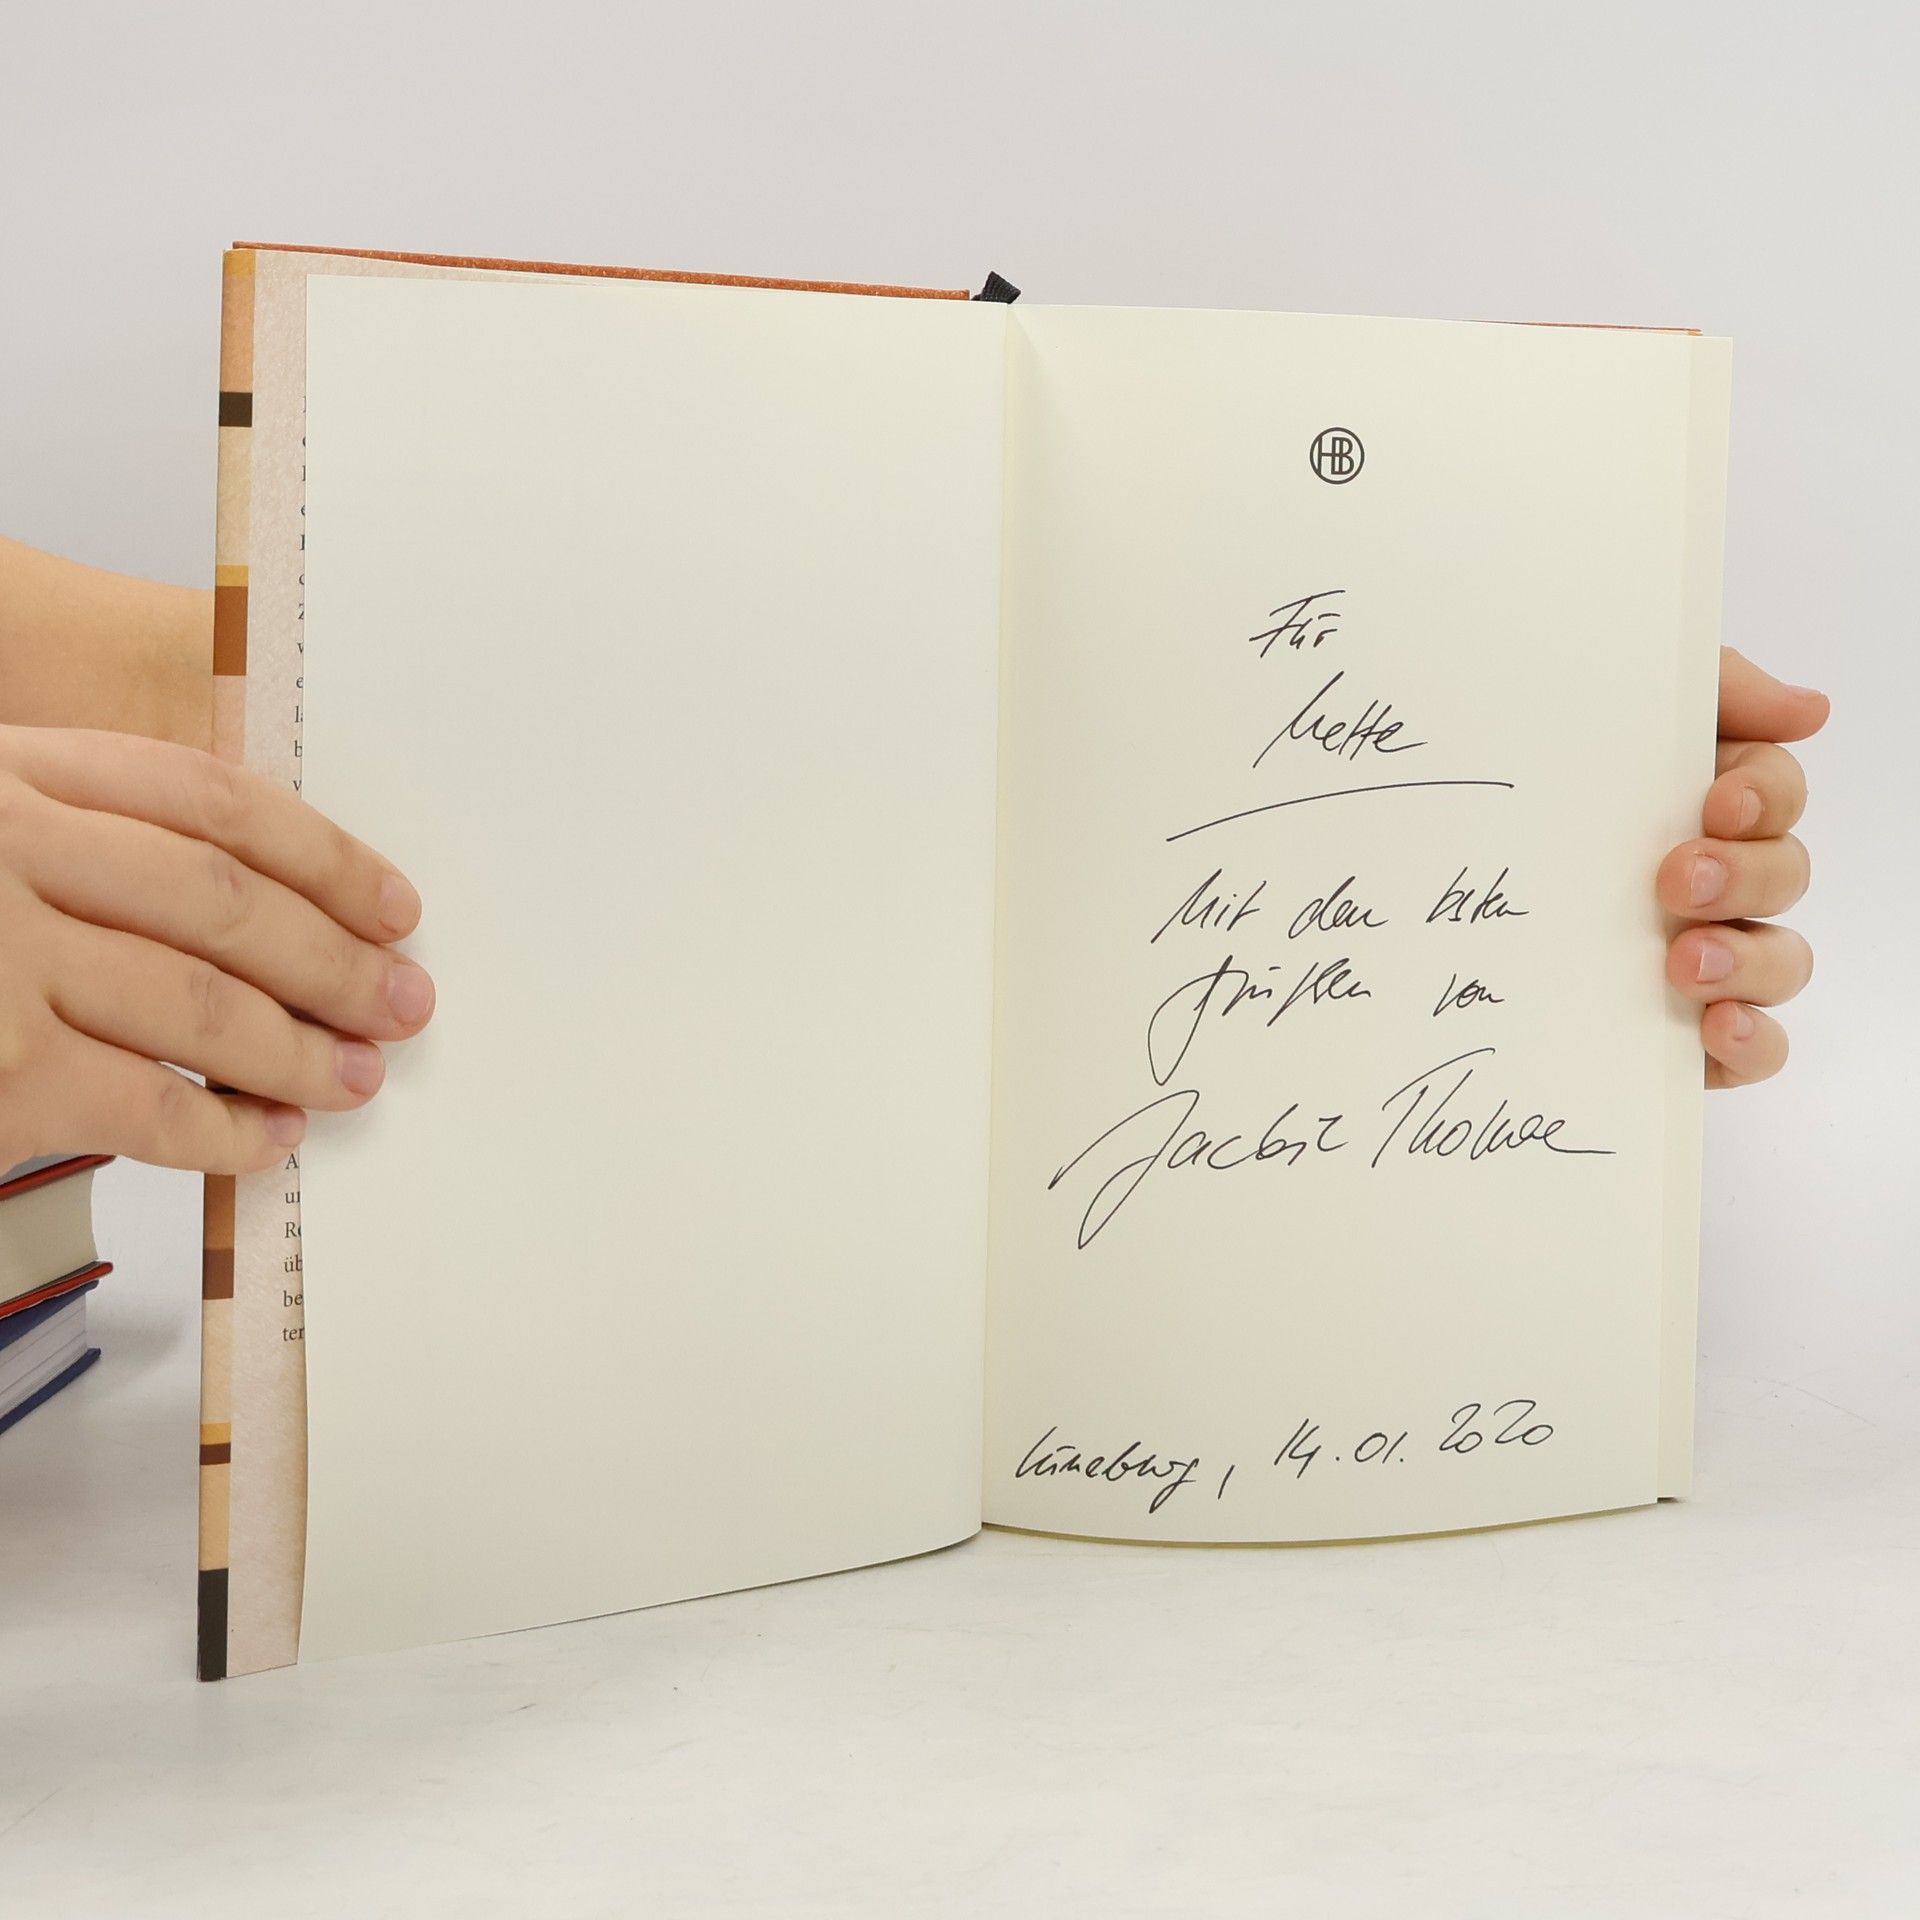 HB
Für
Mette
Mit den besten
Grüßen von
Jackie Thomae
Lüneburg, 14.01.2020
A
Re
üb
be
ter